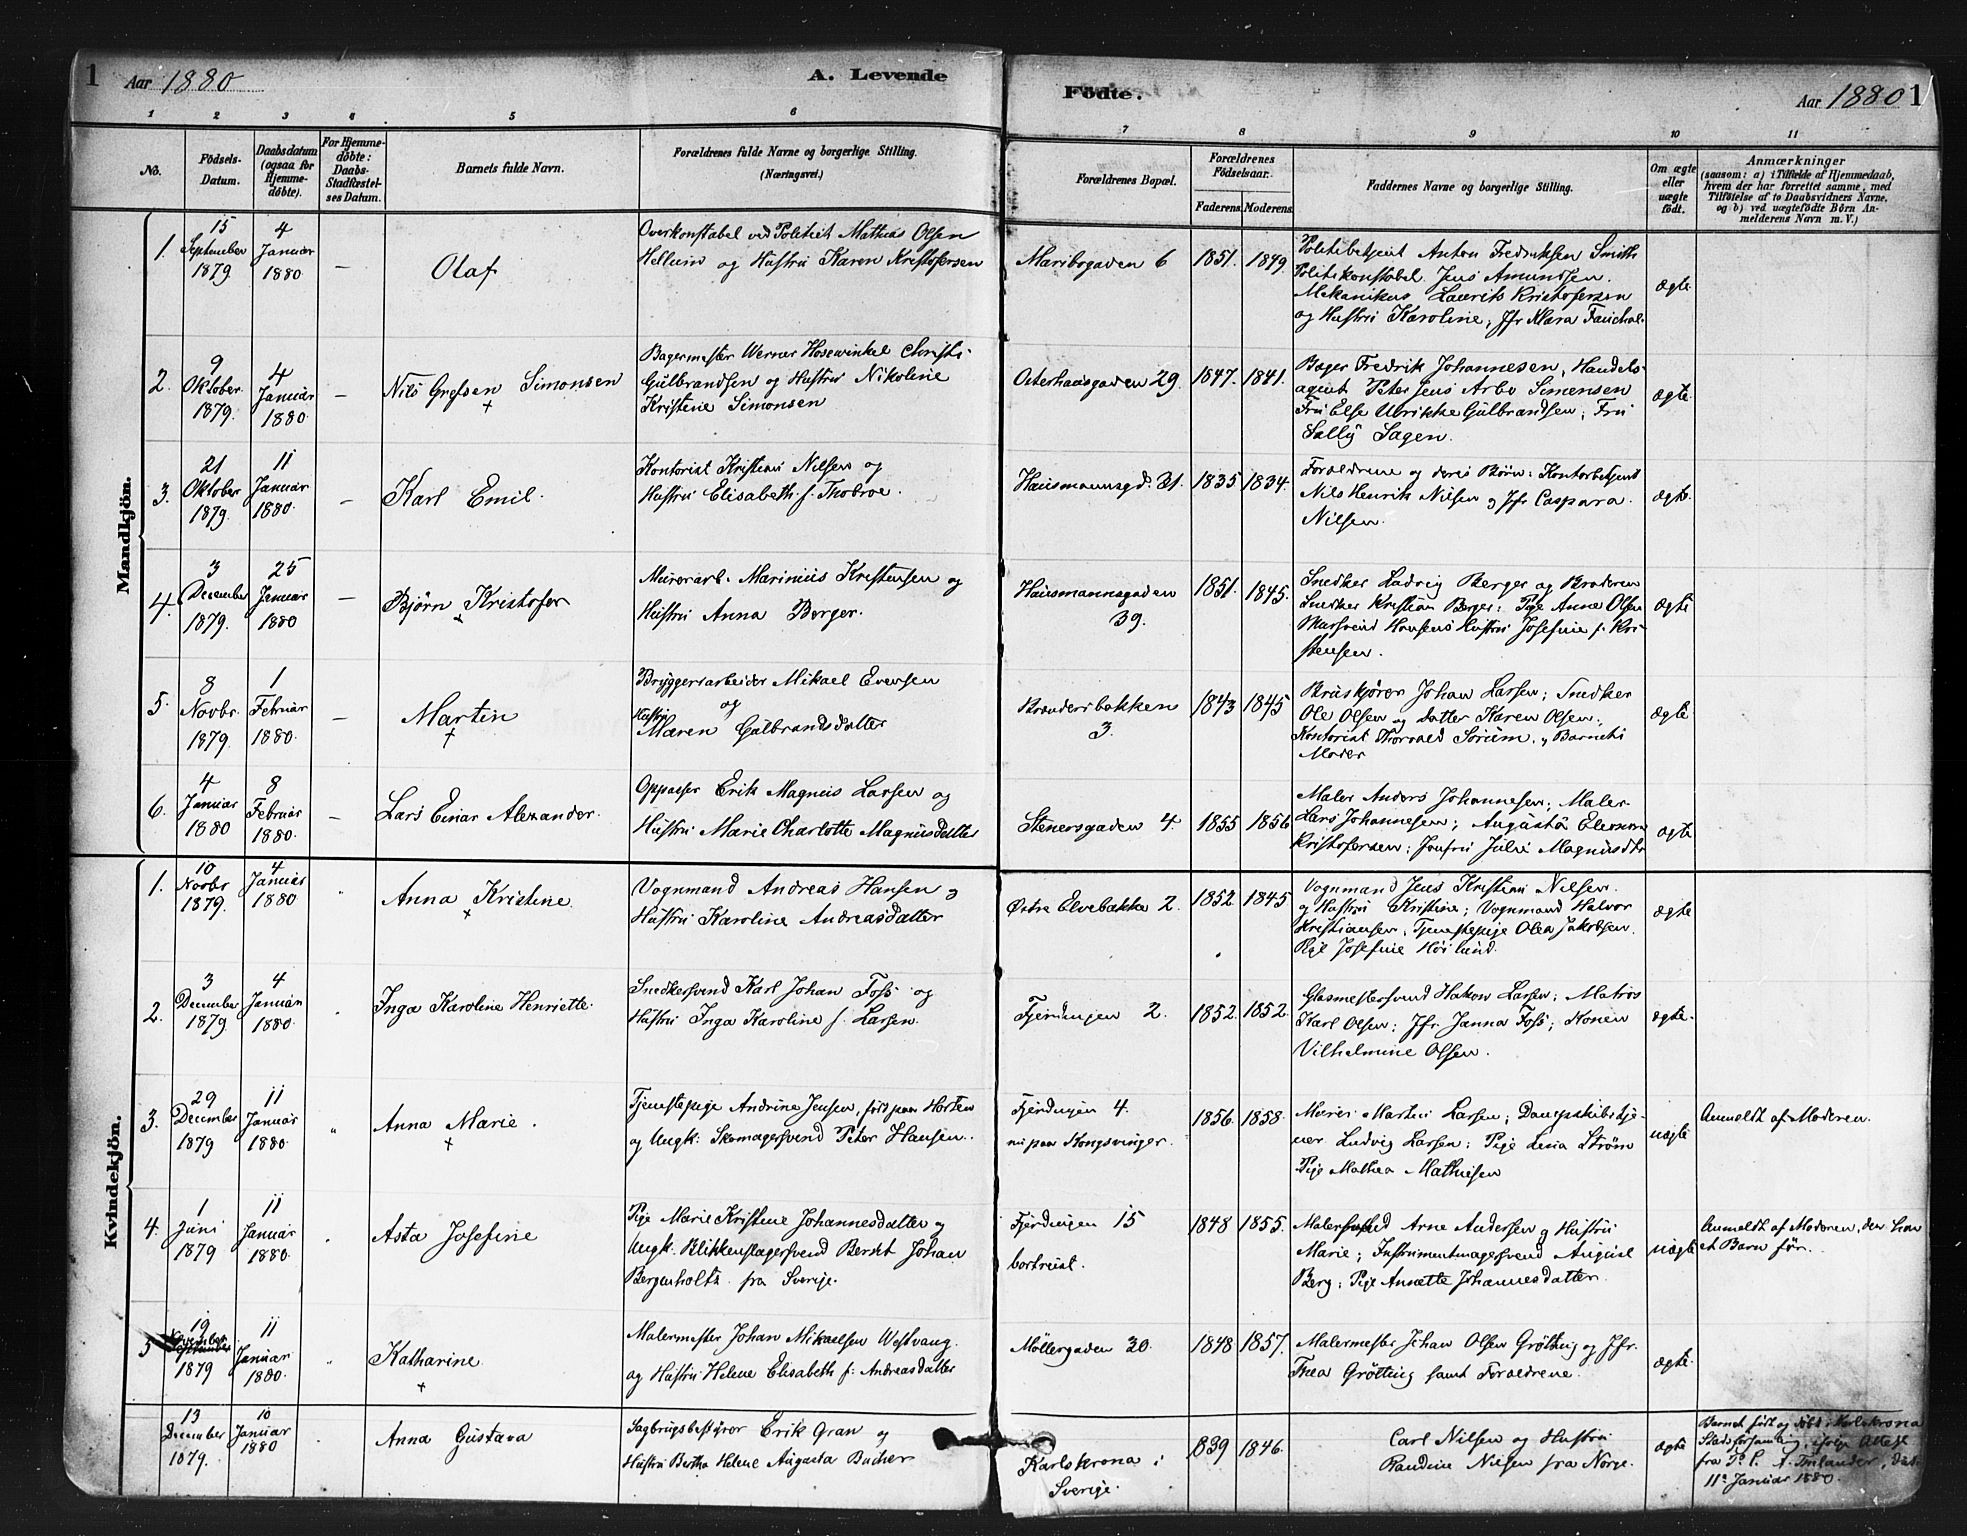 1 Aar 1880 A. Levende
Födte. Aar 1880 1
1 2 3 4 5 6
7 8 9 10 11
No.
Födsels-
Datum.
Daabsdatum
(ogsaa for
Hjemme-
döbte).
For Hjemme-
döbte:
Daabs-
Stadfæstel-
ses Datum.
Barnets fulde Navn.
Forældrenes fulde Navne og borgerlige Stilling.
(Næringsvei.)
Forældrenes Bopæl.
Forældrenes
Födselsaar.
Faderens. Moderens.
Faddernes Navne og borgerlige Stilling.
Om ægte
eller
uægte
födt.
Anmærkninger
(saasom: a) i Tilfælde af Hjemmedaab,
hvem der har forrettet samme, med
Tilföielse af to Daabsvidners Navne.
og b) ved uægtefödte Börn An-
melderens Navn m. V.)
Mandkjön.
1.
15
September
1879
4
Januar
1880
—
Olaf
Overkonstabel ved Politiet Mathias Olsen
Hellum og Hustru Karen Kristofersen
Maribogaden 6
1851. 1849
Politibetjent Anton Fredriksen Smith
Politikonstabel Jens Amundsen.
Mekanikus Laurits Kristofersen
og Hustru Karoline, Jfr Klara
ægte
2.
9
Oktober
1879.
4
Januar
1880.
—
Nils Simonsen
+
Bagermester Werner Hosewinkel Christi
Gulbrandsen og Hustru Nikoline
Kristene Simonsen
Osterhausgaden 29.
1847. 1841.
Bager Fredrik Johannesen, Handels-
agent Peter Jens Arbo Simensen
Fru Else Ulrikke Gulbrandsen; Fru
Sally Sagen.
ægte.
3.
21
Oktober
1879.
11
Januar
1880.
—
Karl Emil.
Kontorist Kristian Nilsen og
Hustru Elisabeth f. Thobroe.
Hausmannsgd. 31.
1835 1834.
Foraeldrene og deres Børn: Kontorbetjent
Nils Henrik Nilsen og Jfr Caspara
Nilsen.
ægte.
4.
3
December
1879.
25
Januar
1880
—
Bjørn Kristofer
+
Murerarb. Marinius Kristensen og
Hustru Anna Berger.
Hausmannsgaden
39.
1851. 1845.
Snedker Ludvig Berger og Broderen
Snedker Kristian Berger: Pige Anne Olsen
Hansens Hustru Josefine f. Kri-
stensen.
ægte
5.
8
Novbr.
1879.
1
Februar
1880.
—
Martin
+
Bryggeriarbeider Mikael Eversen
og
Hustru
Maren Gulbrandsdatter
bakken
3.
1843 1845
Johan Larsen; Snedker
Ole Olsen og Datter Karen Olsen;
Kontorist Thorvald Sörum, Barnets
Moder
ægte
6.
4
Januar
1880
8
Februar
1880.
—
Lars Einar Alexander.
Oppasser Erik Magnus Larsen og
Hustru Marie Charlotte Magnusdatter
Stenersgaden 4.
1855 1856
Maler Anders Johannesen; Maler
Lars Johannesen; Augusta
Kristofersen; Jomfru Julie Magnusdtr
ægte
Kvindekjön.
1.
10
Novbr
1879.
4
Januar
1880
"
Anna Kristine.
+
Vognmand Andreas Hansen og
Hustru Karoline Andreasdatter
Østre Elvebakke 2.
1852 1845
Vognmand Jens Kristian Nilsen
og Hustru Kristine; Vognmand Halvor
Kristiansen, Tjenestepige Olea Jakobsen.
Pige Josefine Höilund.
ægte
2.
3
December
1879
4
Januar
1880.
Inga Karoline Henriette.
Snedkersvend Karl Johan Foss og
Hustru Inga Karoline f. Larsen.
Fjerdingen 2.
1852. 1852.
Glasmestersvend Hakon Larsen; Matros
Karl Olsen; Jfr. Janna Foss; Konen
Vilhelmine Olsen.
ægte.
3.
29
December
1879
11
Januar
1880.
"
Anna Marie.
+
Tjenestepige Andrine Jensen, født paa Horten
og Ungk: Skomagersvend Peter Hansen.
Fjerdingen 4.
nu paa Kongsvinger.
1856. 1858.
Murer Martin Larsen; Dampskibstje-
ner Ludvig Larsen; Pige Lina Strøm
Pige Mathea Mathiesen
uægte
Anmeldt af Moderen.
4.
1
Juni
1879
11
Januar
1880.
Asta Josefine
Pige Marie Kristine Johannesdatter og
Ungk. Blikkenslagersvend Berndt Johan
Bergenholtz fra Sverige.
Fjerdingen 15
bortreist.
1848 1855.
Malersvend Arne Andersen og Hustru
Marie; Instrumentmagersvend August
Berg; Pige Annette Johannesdatter.
uægte
Anmeldt af Moderen, der har
et Barn før.
5
19
November
September
1879
11
Januar
1880.
Katharine
+
Malermester Johan Mikaelsen Westvang
og Hustru Helene Elisabeth f. Andreasdatter
Møllergaden 20.
1848 1857.
Malermester Johan Olsen Grötting og Jfr.
Thea Grötting samt Foraeldrene.
ægte.
13
December
1879.
10
Januar
1880
Anna Gustava
Sagbrugsbestyrer Erik Gran og
Hustru Bertha Helene Augusta Bucher
Karlskrona i
Sverige.
1839 1846.
Carl Nilsen og Hustru
Randine Nilsen fra Norge.
ægte
Barnet født og døbt i Karlskrona
Stadsförsamling, ifølge Attest
fra P. P. A. Inlander, dat.
11te Januar 1880.